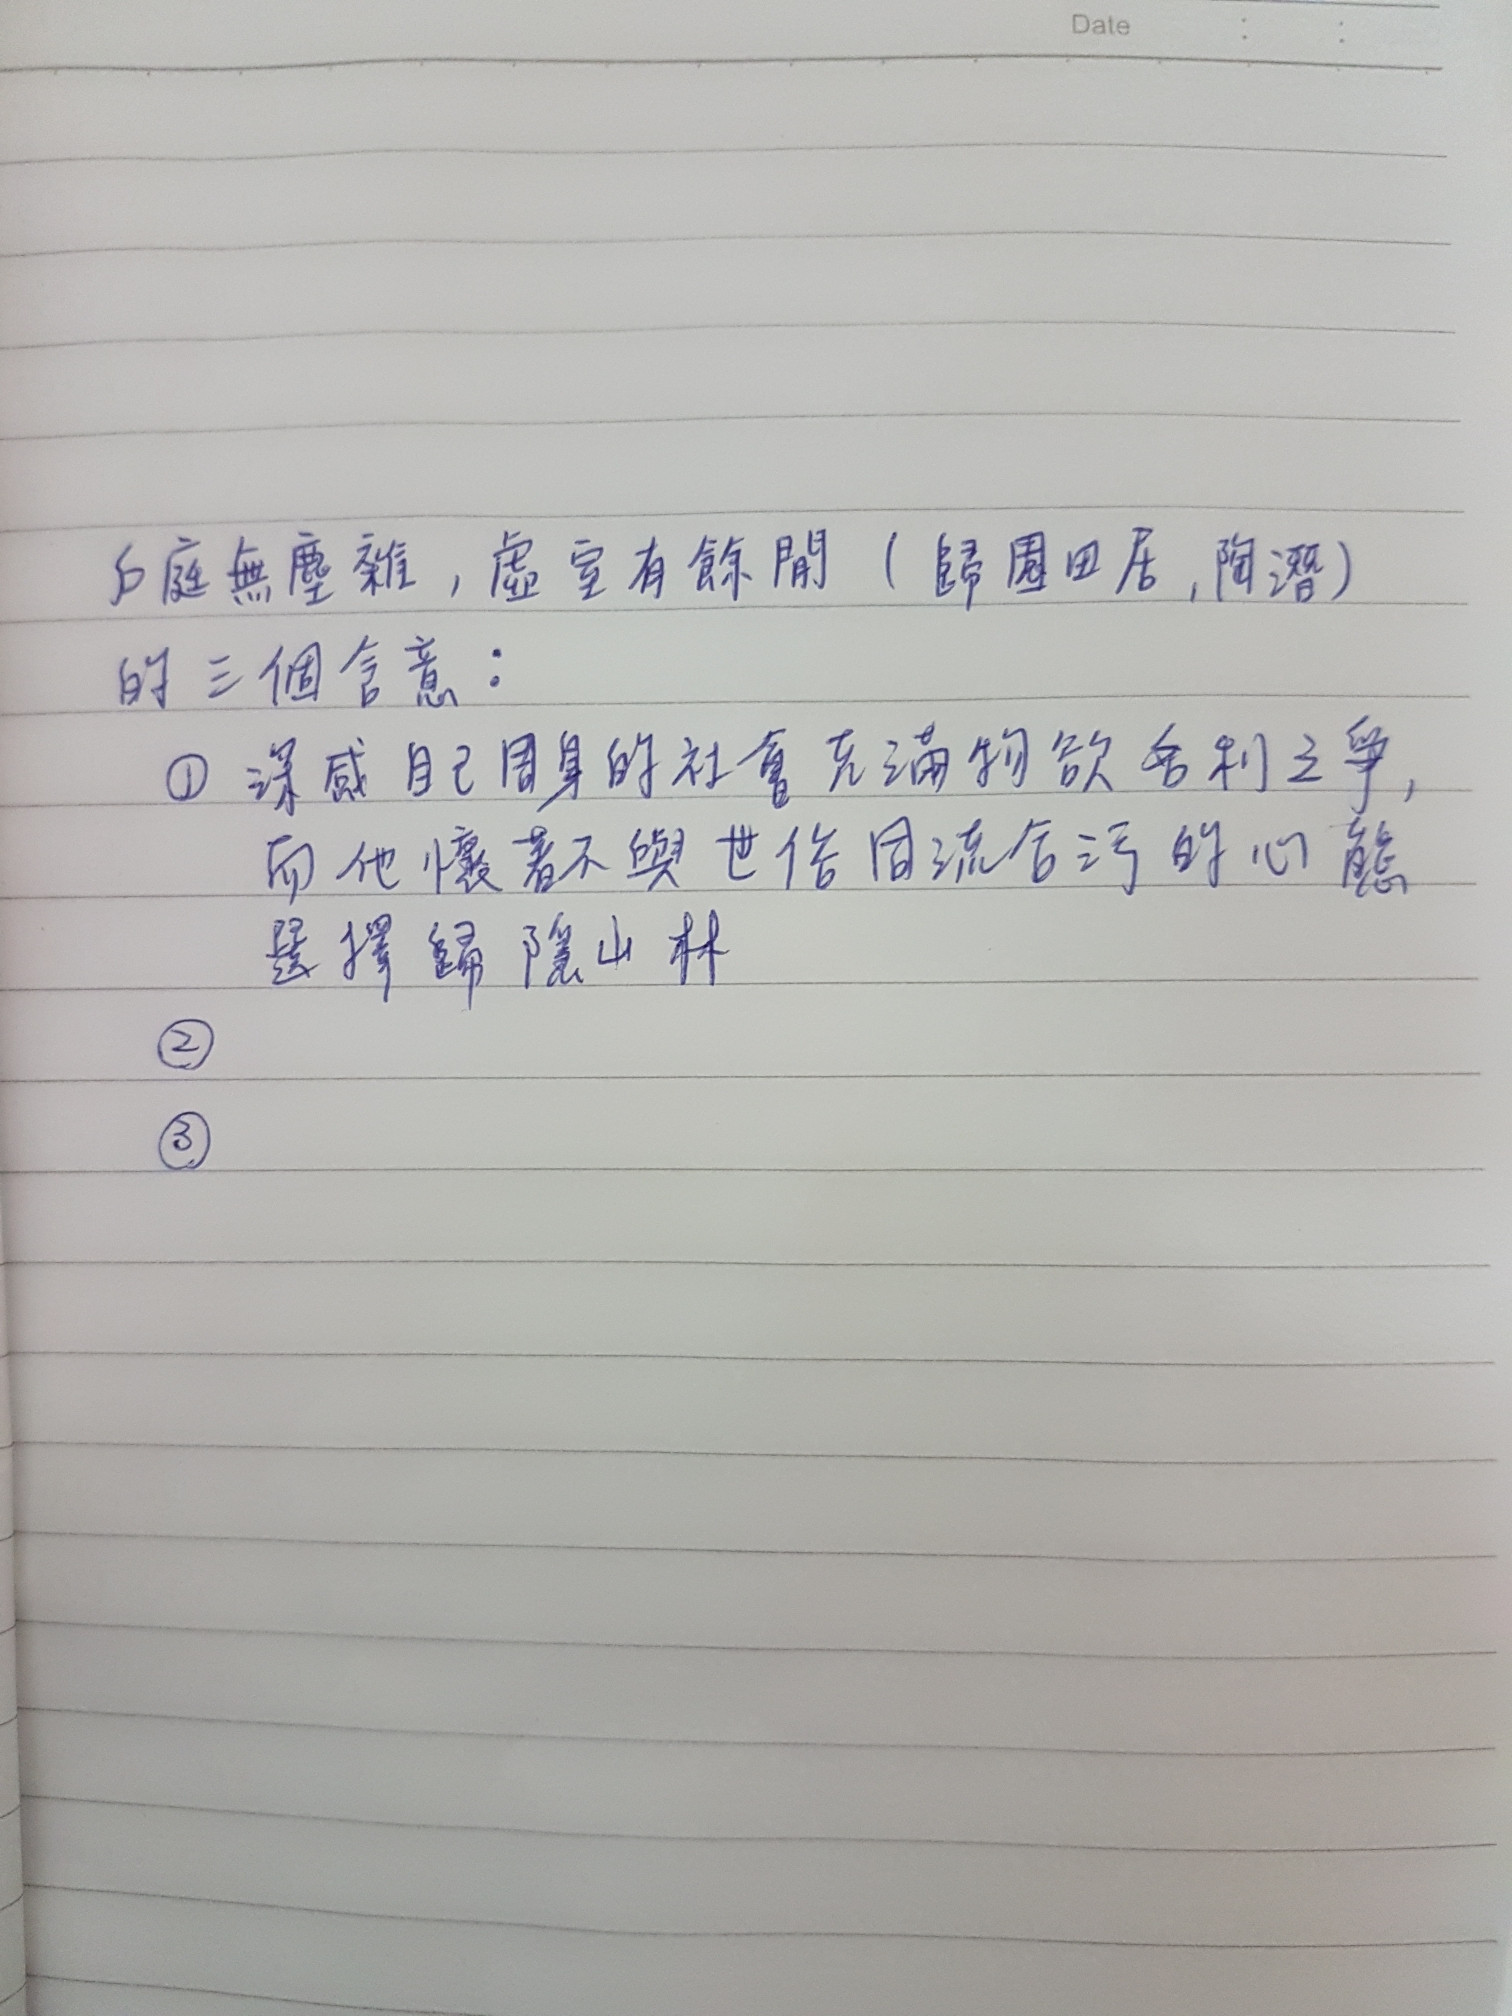 Date : :
戶庭無塵雜,虛室有餘閒(歸園田居,陶潛)
的三個含意:
① 深感自己周身的社會充滿物欲名利之爭,
而他懷著不與世俗同流合污的心態
選擇歸隱山林
②
③